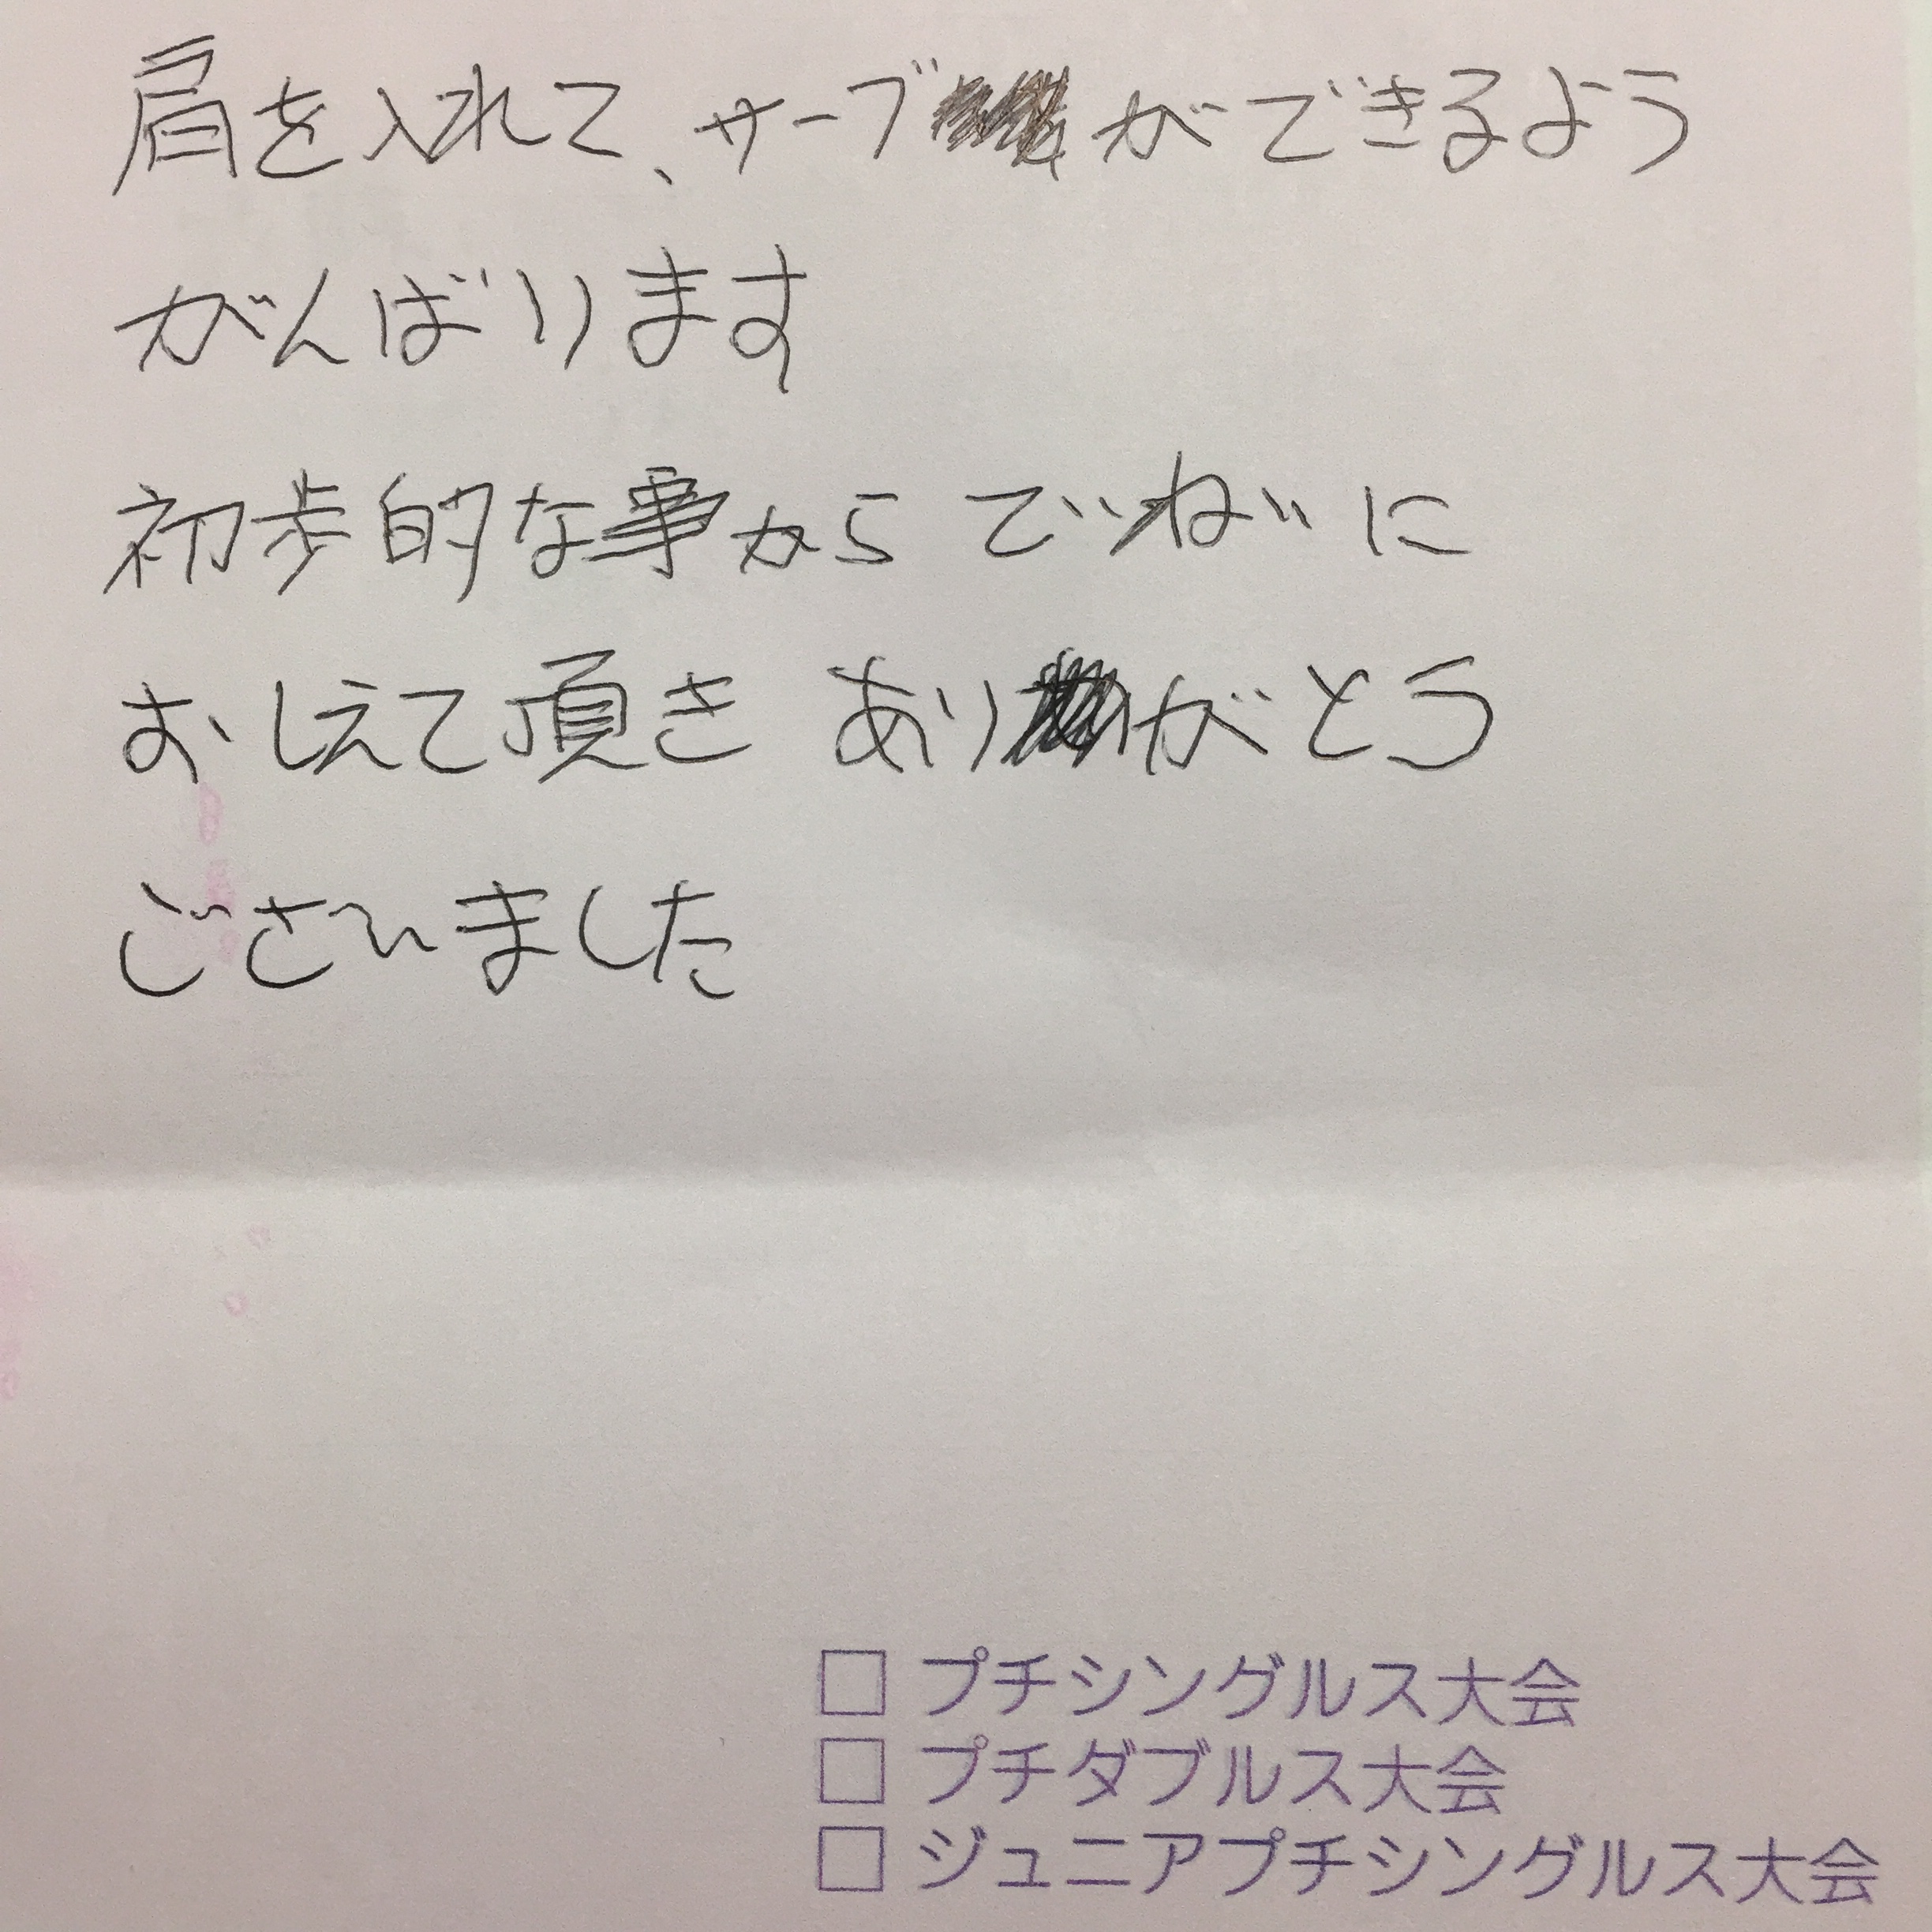 肩を入れて、サーブができるよう
がんばります
初歩的な事からていねいに
おしえて頂き ありがとう
ございました
□ プチシングルス大会
□ プチダブルス大会
□ ジュニアプチシングルス大会